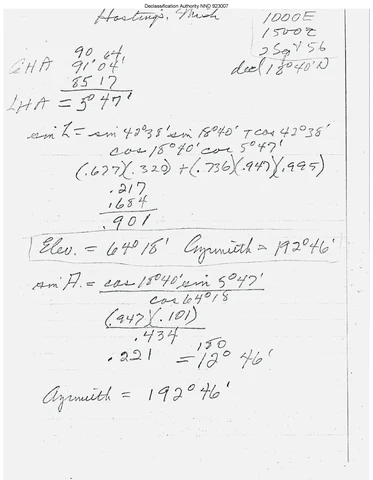 Declassification Authority NND 923007
Hastings, Mich
1000E
1500Z
25 56
dec (18°40'N)
90 64
GHA 91°04'
85 17
LHA = 5°47'
sin L = sin 42°38' sin 18°40' + cos 42°38'
cos 18°40' cos 5°47'
(.677)(.320) + (.736)(.947)(.995)
.217
.684
.901
Elev. = 64°18' Azymuith = 192°46'
sin A. = cos 18°40' sin 5°47'
cos 64°18
(.947)(.101)
.434
.221 = 12° 46'
180
Azymuith = 192°46'